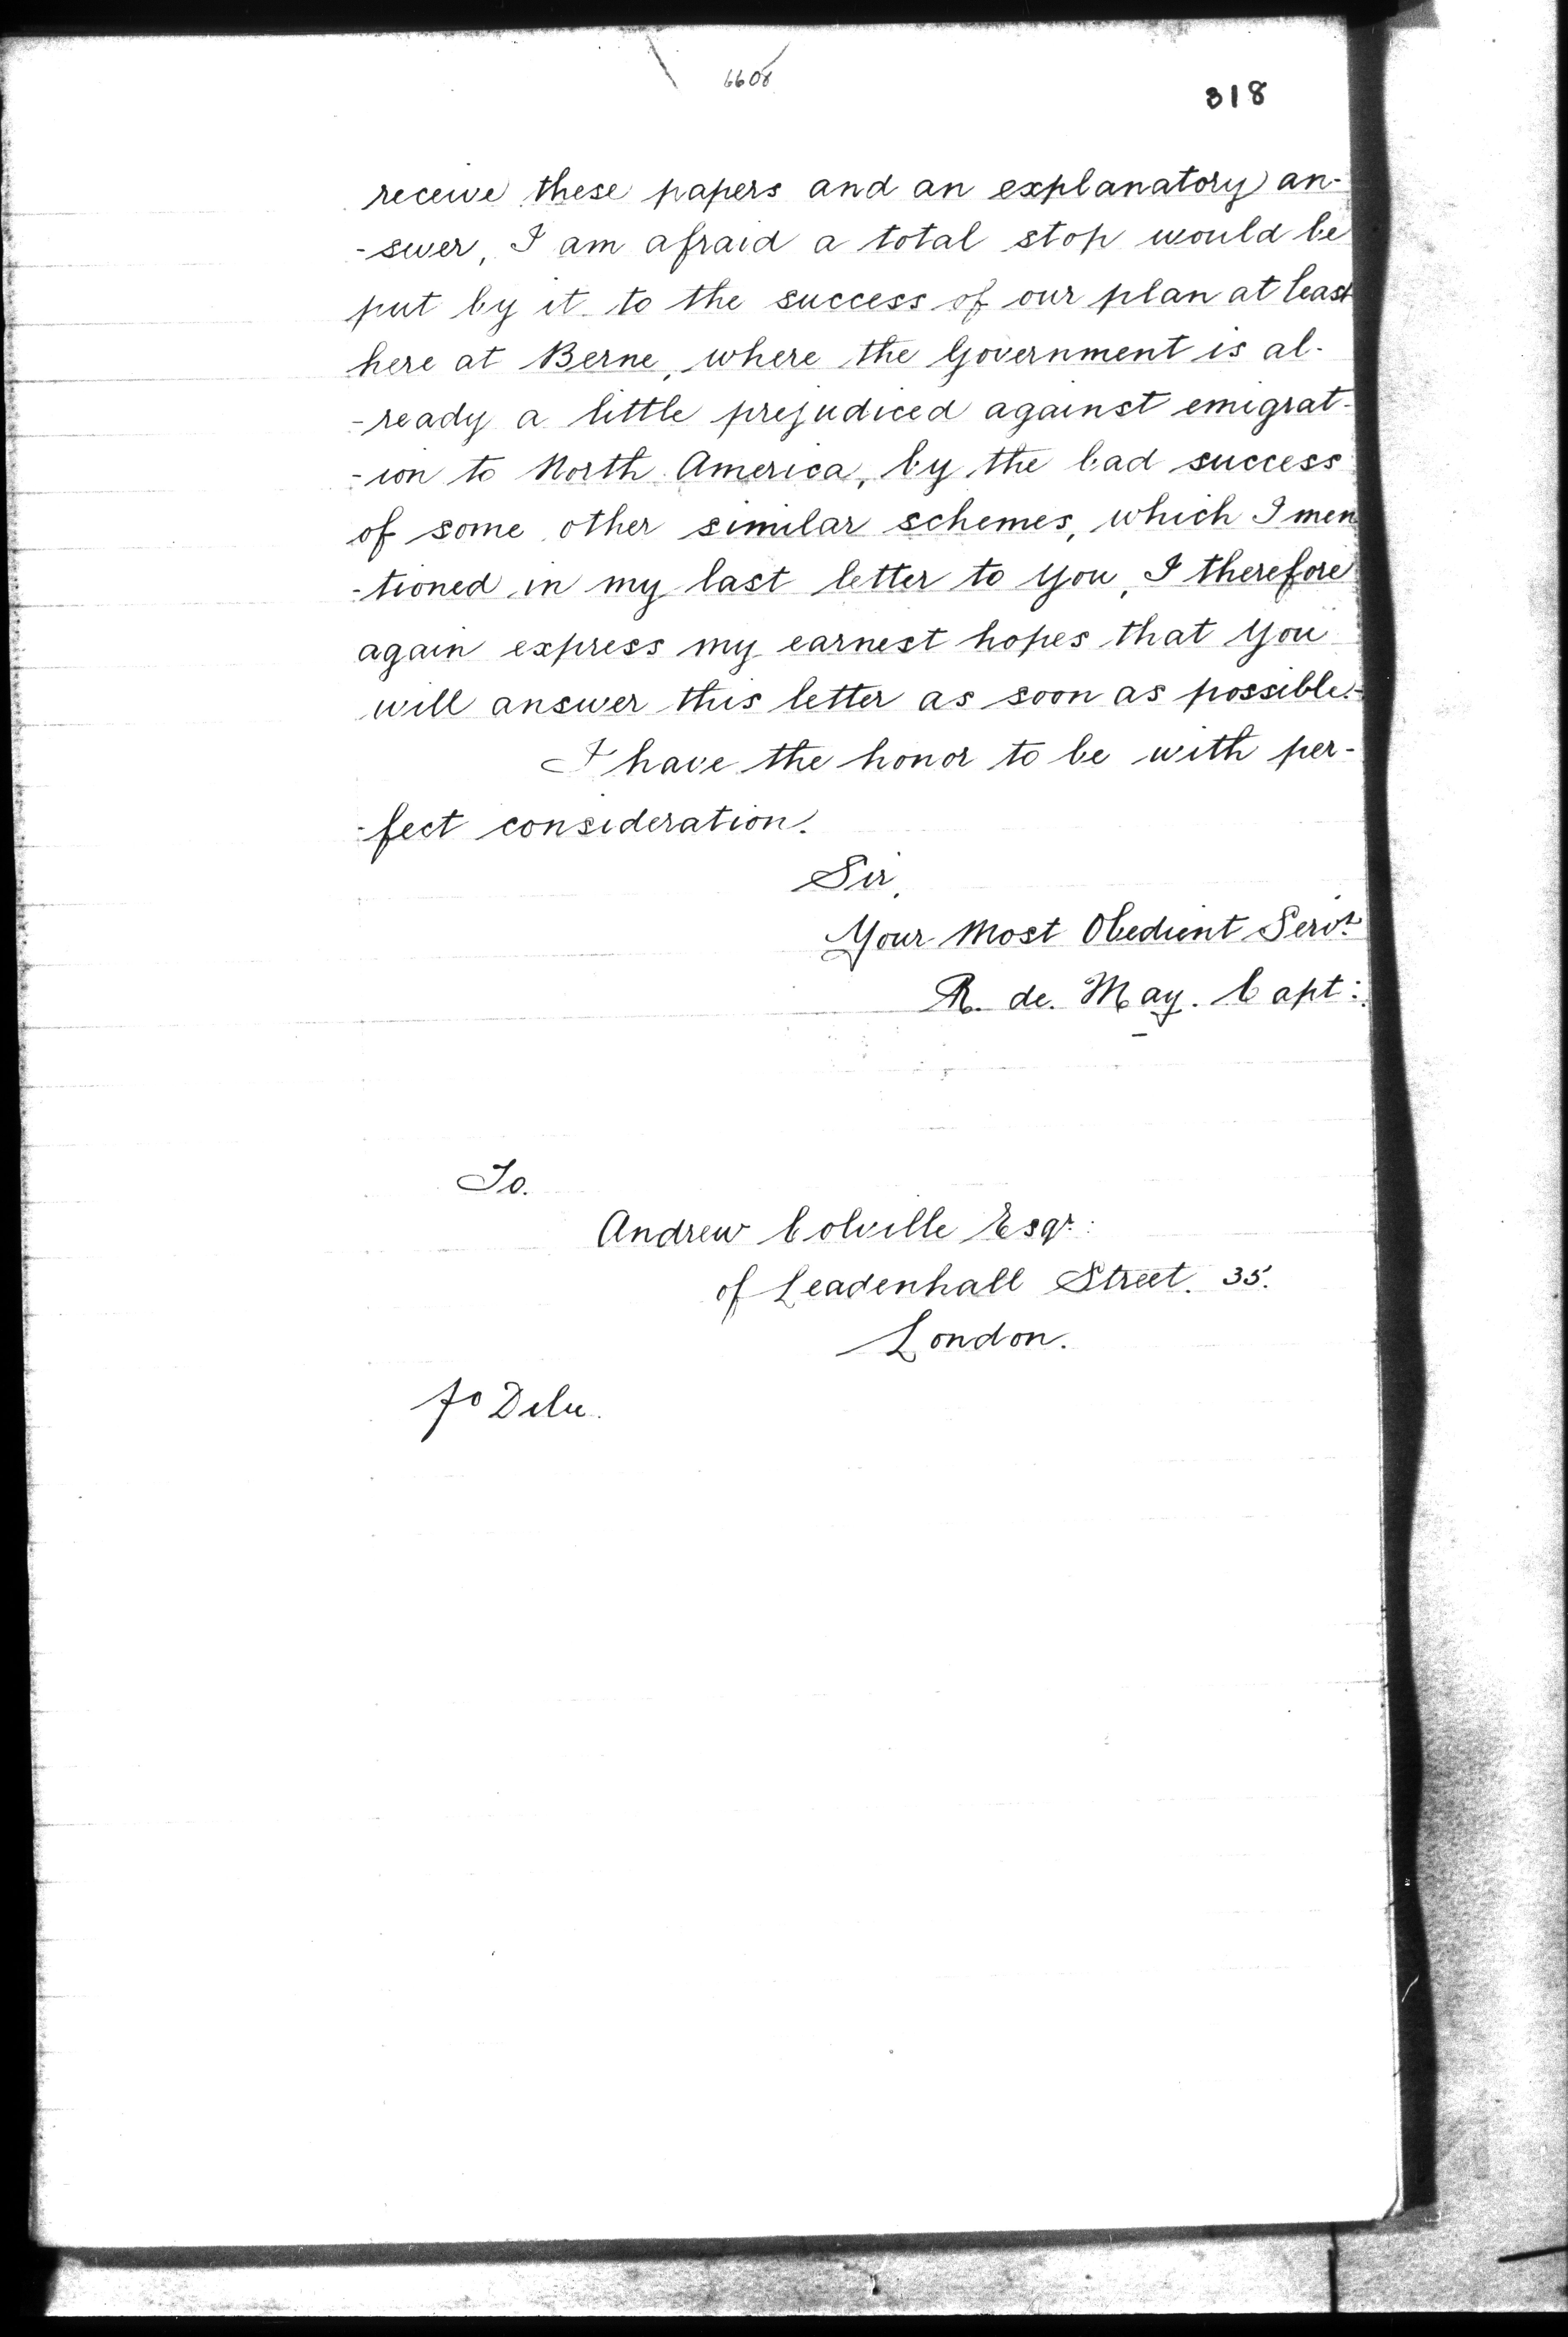 6608
318
receive these papers and an explanatory an-
-swer, I am afraid a total stop would be
put by it to the success of our plan at least
here at Berne, where the Government is al-
-ready a little prejudiced against emigrat-
-ion to North America, by the bad success
of some other similar schemes, which I men
-tioned in my last letter to You, I therefore
again express my earnest hopes that You
will answer this letter as soon as possible.-
I have the honor to be with per-
-fect consideration.
Sir,
Your Most Obedient Servt.
R. de. May. Capt:
To.
Andrew Colville Esqr:
of Leadenhall Street. 35.
London.